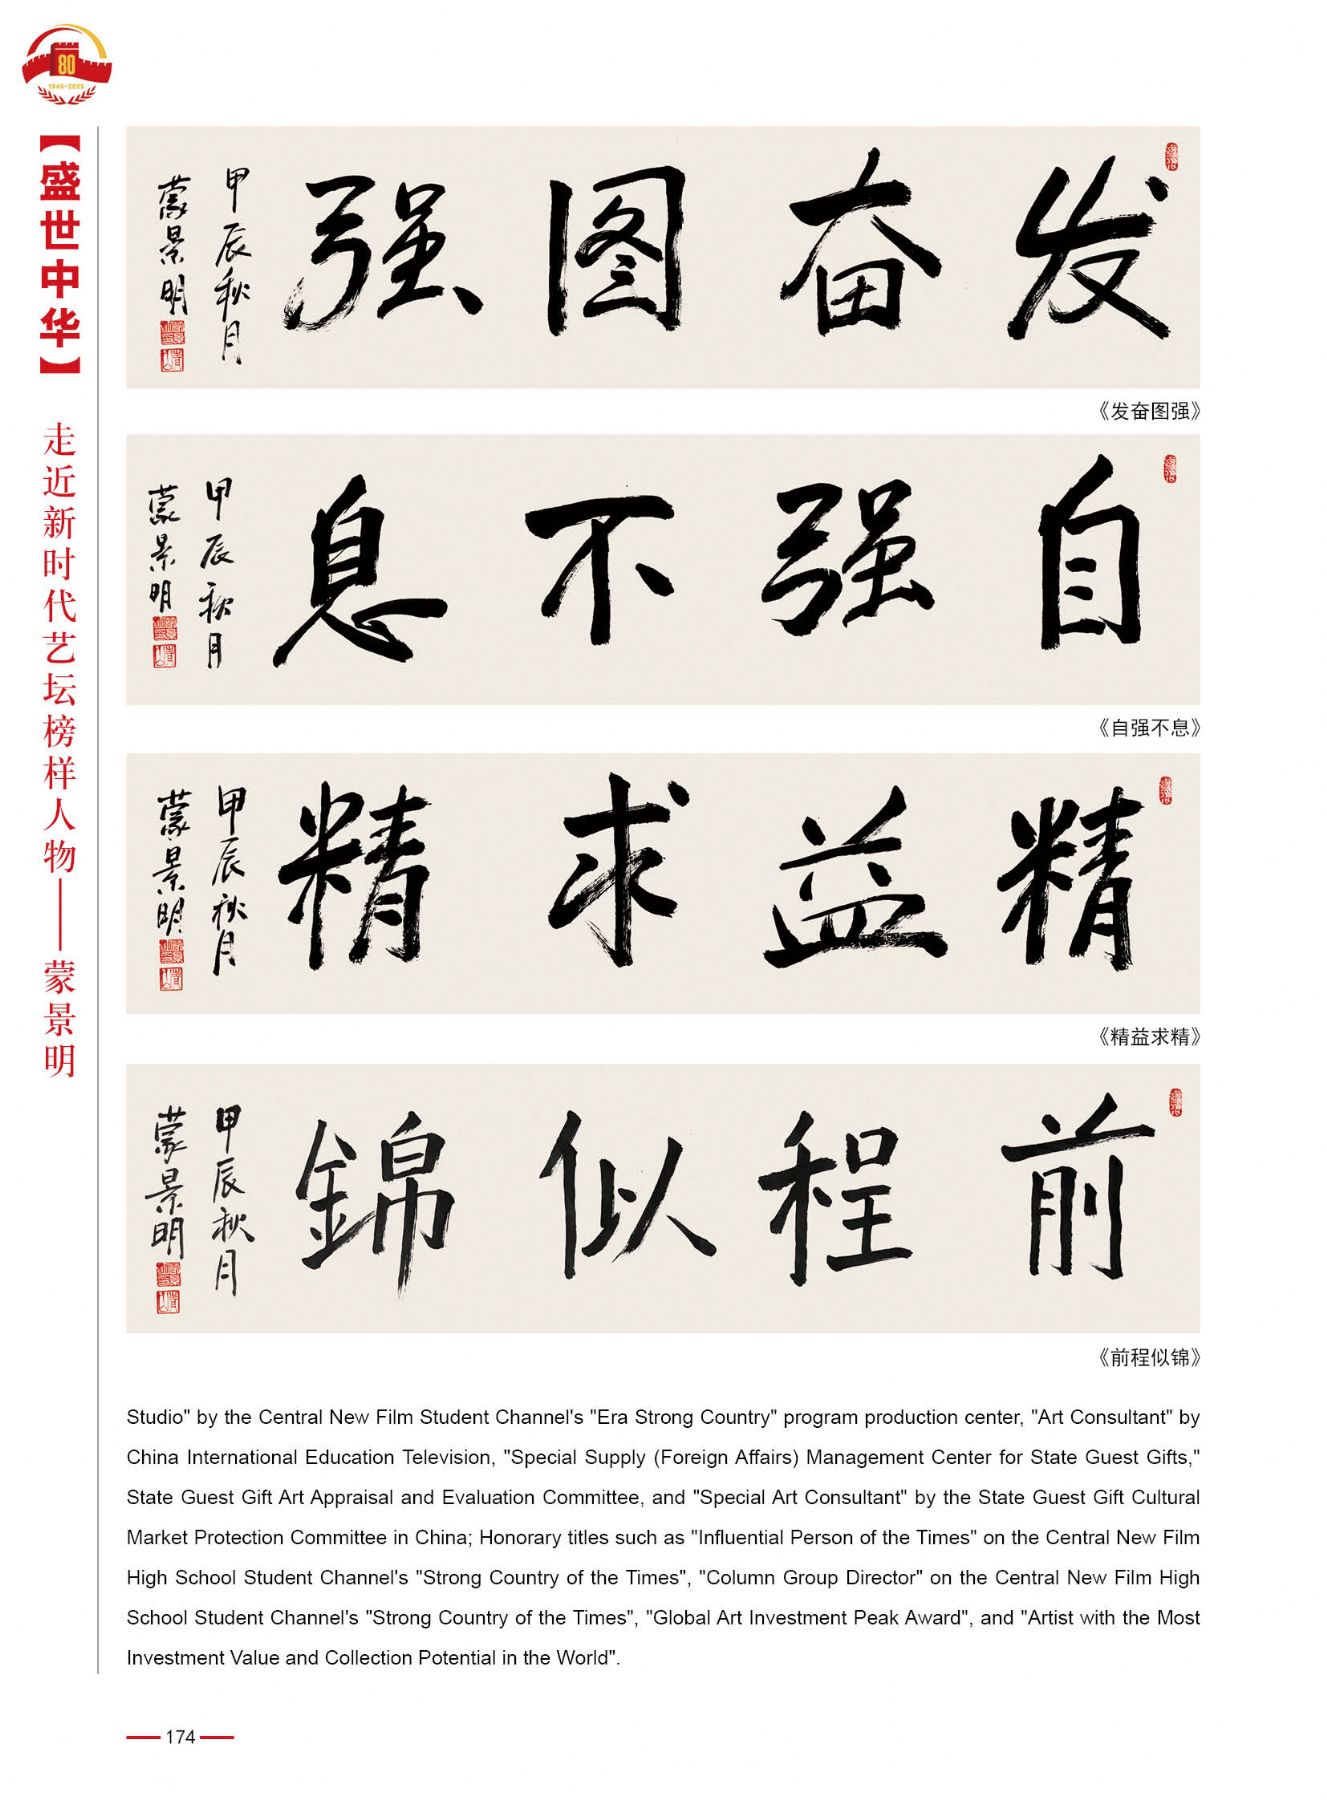 80
1945-2025
【盛世中华】
走近新时代艺坛榜样人物——蒙景明
发奋图强
甲辰秋月
蒙景明
《发奋图强》
自强不息
甲辰秋月
蒙景明
《自强不息》
精益求精
甲辰秋月
蒙景明
《精益求精》
前程似錦
甲辰秋月
蒙景明
《前程似锦》
Studio" by the Central New Film Student Channel's "Era Strong Country" program production center, "Art Consultant" by
China International Education Television, "Special Supply (Foreign Affairs) Management Center for State Guest Gifts,"
State Guest Gift Art Appraisal and Evaluation Committee, and "Special Art Consultant" by the State Guest Gift Cultural
Market Protection Committee in China; Honorary titles such as "Influential Person of the Times" on the Central New Film
High School Student Channel's "Strong Country of the Times", "Column Group Director" on the Central New Film High
School Student Channel's "Strong Country of the Times", "Global Art Investment Peak Award", and "Artist with the Most
Investment Value and Collection Potential in the World".
174